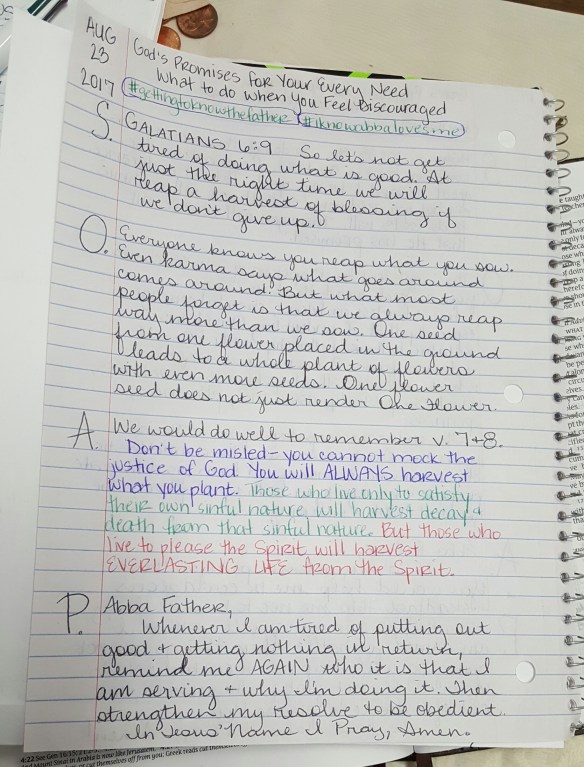 AUG
23
2017
God's Promises for Your Every Need
What to do when you Feel Discouraged
#gettingtoknowthefather #iknowabbalovesme
S. GALATIANS 6:9 So let's not get
tired of doing what is good. At
just the right time we will
reap a harvest of blessing if
we don't give up.
O. Everyone knows you reap what you sow.
Even karma says what goes around
comes around. But what most
people forget is that we always reap
way more than we sow. One seed
from one flower placed in the ground
leads to a whole plant of flowers
with even more seeds. One flower
seed does not just render One flower.
A. We would do well to remember v. 7+8.
Don't be misled - you cannot mock the
justice of God You will ALWAYS harvest
what you plant. Those who live only to satisfy
their own sinful nature will harvest decay +
death from that sinful nature. But those who
live to please the Spirit will harvest
EVERLASTING LIFE from the Spirit.
P. Abba Father,
Whenever I am tired of putting out
good + getting nothing in return,
remind me AGAIN who it is that I
am serving + why I'm doing it. Then
strengthen my resolve to be obedient.
In Jesus' Name I Pray, Amen.